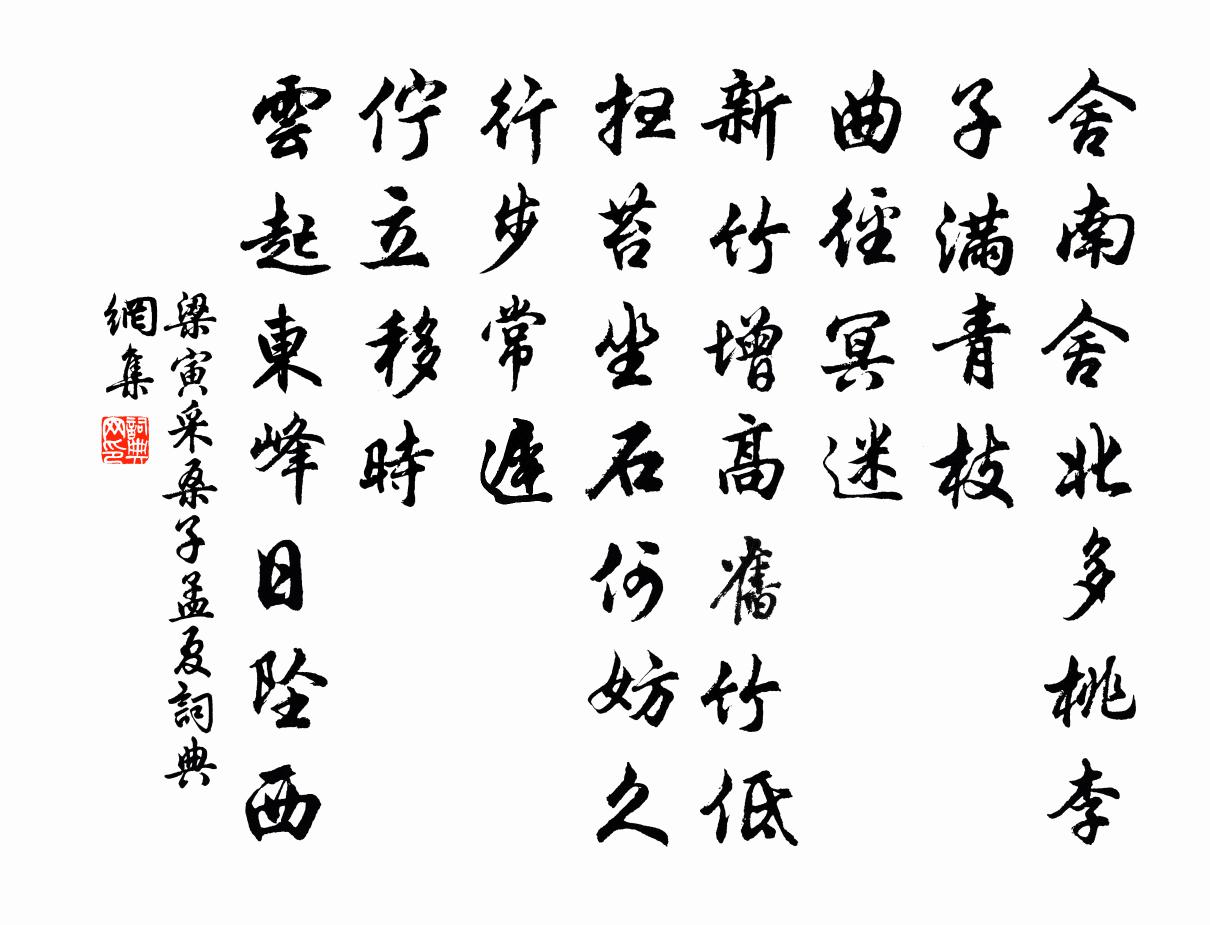 舍南舍北多桃李
子滿青枝
曲徑冥迷
新竹增高舊竹低
掃苔坐石何妨久
行步常遲
佇立移時
雲起東峰日墜西
梁寅采桑子孟夏詞典
網集
詞典
网印